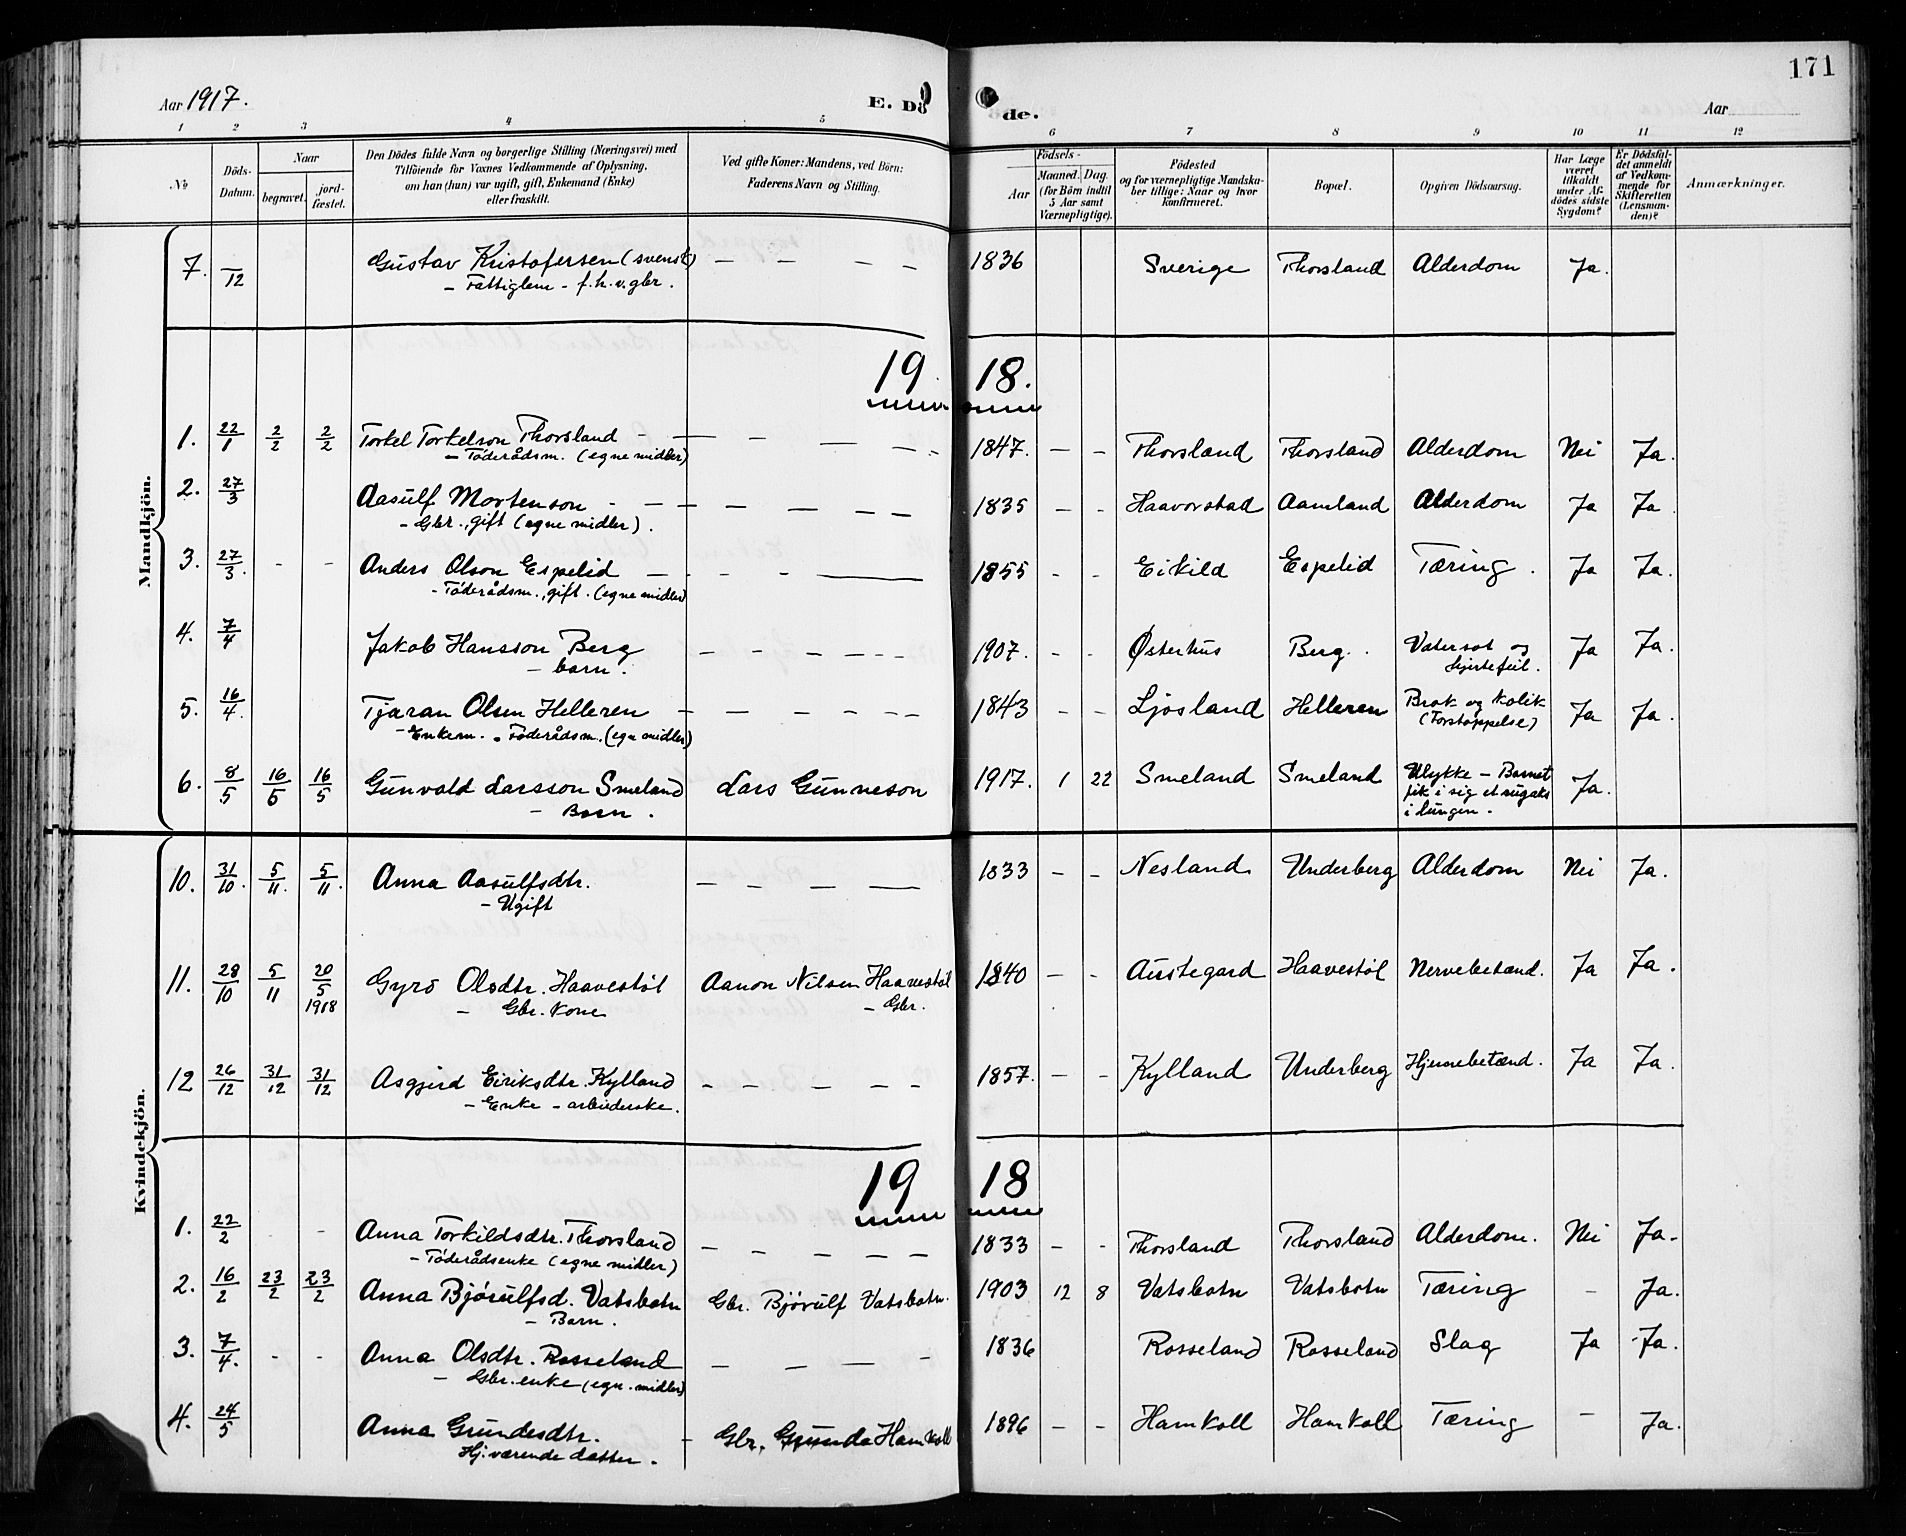 171
Aar 1917. E. Dö de. Aar
1 2 3 4 5 6 7 8 9 10 11 12
No
Döds-Datum.
Naar
begravet.
jord-fæstet.
Den Dödes fulde Navn og borgerlige Stilling (Næringsvei) med
Tilföiende for Voxnes Vedkommende af Oplysning,
om han (hun) var ugift, gift, Enkemand (Enke)
eller fraskilt.
Ved gifte Koner: Mandens, ved Börn:
Faderens Navn og Stilling.
Födsels-
Aar
Maaned. Dag.
(for Börn indtil
5 Aar samt
Værnepligtige).
Födested
og for værnepligtige Mandska-
ber tillige: Naar og hvor
konfirmeret.
Bopæl.
Opgiven Dödsaarsag.
Har Læge
været
tilkaldt
under Af-
dödes sidste
Sygdom?
Er Dödsfal-
det anmeldt
af Vedkom-
mende for
Skifteretten
(Lensman-
den)?
Anmærkninger.
Mandkjön.
7. —/12 Gustav Kristofersen (svensk) — — — — 1836 Sverige Thorsland Alderdom Ja.
– Fattiglem – f.h.v. gbr.
19 18.
1. 22/1 2/2 2/2 Torkel Torkelson Thorsland – — – — – - 1847. — – Thorsland Thorsland Alderdom Nei Ja.
– Föderådsm. (egne midler)
2. 27/3 Aasulf Mortenson - – — – — — — 1835 – – Haavorstad Aamland Alderdom Ja Ja
– Gbr., gift (egne midler).
3. 27/3. - - Anders Olson Espelid — – – — 1855 - - Eikild Espelid Tæring. Ja Ja.
– Föderådsm., gift. (egne midler)
4. 7/4 Jakob Hansson Berg — – — — – — 1907. – - Østerhus Berg. Vatersot og Ja Ja.
– barn. hjertefeil.
5. 16/4. Tjæran Olsen Helleren — – — – – – 1843 – – Ljosland Helleren Brok og kolik Ja Ja.
– Enkem. – Föderådsm. (egn midler) (Forstoppelse)
6. 8/5 16/5 16/5 Gunvald Larsson Smeland Lars Gunneson 1917. 1 22 Smeland Smeland Ulykke – Barnet Ja.
– Barn. fik i sig et rugaks
i lungen –
Kvindekjön.
10. 31/10. 5/11. 5/11. Anna Aasulfsdtr. — — — — 1833 – – Nesland Underberg Alderdom Nei Ja.
– Ugift
11. 28/10 5/11 20/5 1918 Gyro Olsdtr. Haavestöl Aanon Nilsen Haavestöl 1840 — – Austegard Haavestöl Nervebetænd. Ja Ja.
– Gbr. Kone – Gbr.
12 26/12 31/12 31/12 Asgjerd Eiriksdtr. Kylland – – – – – 1857. – – Kylland Underberg Hjernebetænd. Ja Ja.
– Enke – arbeiderske.
19 18
1. 22/2 - - Anna Torkildsdtr. Thorsland – – – – – 1833 – - Thorsland Thorsland Alderdom. Nei Ja.
– Föderådsenke (egne midler)
2. 16/2 23/2 23/2 Anna Bjórulfsd. Vatsbotn Gbr. Bjórulf Vatsbotn. 1903 12 8 Vatsbotn Vatsbotn Tæring – Ja.
– Barn.
3. 7/4. - - Anna Olsdtr. Rosseland — – — – 1836 Rosseland Rosseland Slag Ja Ja.
– Gbr. enke (egn. midler)
4. 24/5 Anna Grundesdtr. - Gbr. Grunde Hamkoll 1896 – – Hamkoll Hamkoll Tæring – Ja.
Hj. værende datter.